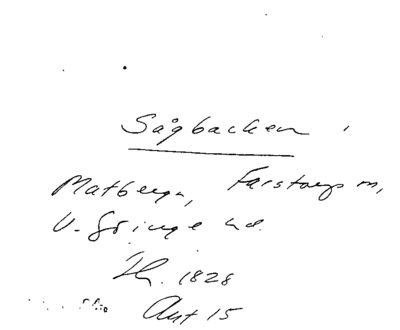 Sågbacken
Matberga, Farstorps sn,
V. Göinge hd.
1828
Akt 15